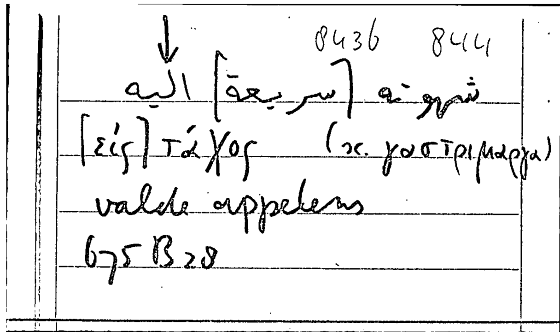 8436 844
شهوته [سريعة] اليه
[εἰς] τάχος (sc. γαστριμαργα)
valde appetens
675 B 28